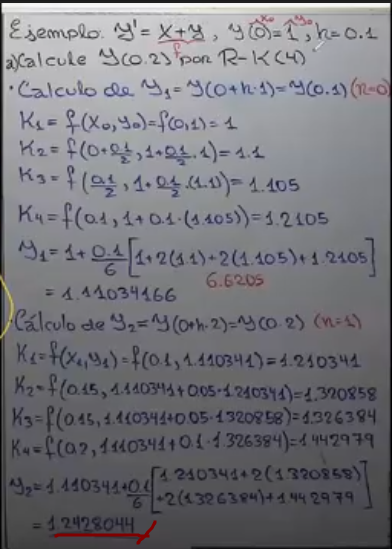 Ejemplo: y' = x+y, y(0)=1, h=0.1
x₀ y₀
f
a) Calcule y(0.2) por R-K(4)
• Calculo de y₁ = y(0+h·1) = y(0.1) (n=0)
K₁ = f(x₀,y₀) = f(0,1) = 1
K₂ = f(0+0.1/2, 1+0.1/2·1) = 1.1
K₃ = f(0.1/2, 1+0.1/2·(1.1)) = 1.105
K₄ = f(0.1, 1+0.1·(1.105)) = 1.2105
y₁ = 1+0.1/6[1+2(1.1)+2(1.105)+1.2105]
6.6205
= 1.11034166
Cálculo de y₂ = y(0+h·2) = y(0.2) (n=1)
K₁ = f(x₁,y₁) = f(0.1, 1.110341) = 1.210341
K₂ = f(0.15, 1.110341+0.05·1.210341) = 1.320858
K₃ = f(0.15, 1.110341+0.05·1.320858) = 1.326384
K₄ = f(0.2, 1.110341+0.1·1.326384) = 1.442979
y₂ = 1.110341+0.1/6[1.210341+2(1.320858)
+2(1.326384)+1.442979]
= 1.2428044